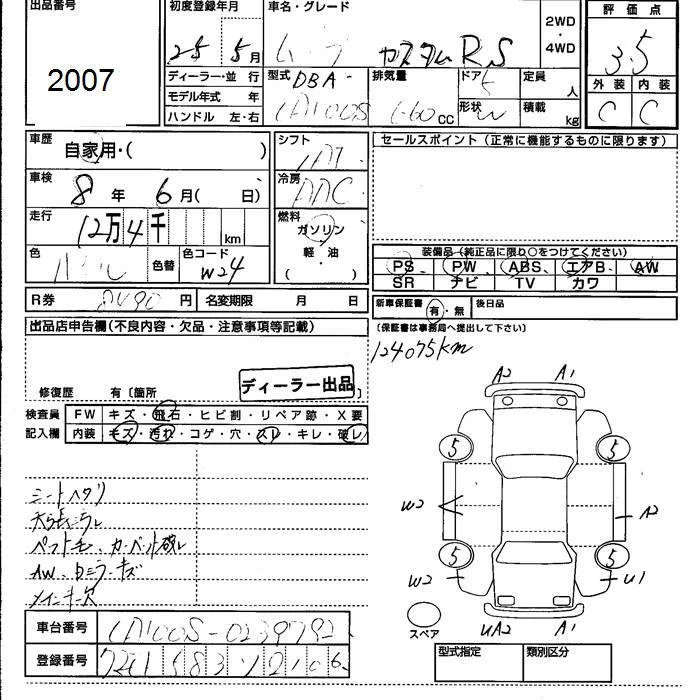 出品番号
2007
初度登録年月
25 5月
車名・グレード
ムーブ カスタムRS
2WD
・
4WD
評価点
3.5
外装 内装
C C
ディーラー・並行
モデル年式 年
ハンドル 左・右
型式 DBA-
LA100S
排気量
660cc
ドア
5
形状
W
定員
人
積載
kg
車歴
自家用・( )
車検
8年 6月( 日)
走行
12万4千 km
色
色替
色コード
W24
R券
8490円
名変期限 月 日
シフト
冷房
AAC
燃料
ガソリン
軽・油
( ・ )
セールスポイント(正常に機能するものに限ります)
装備品(純正品に限り○をつけてください)
PS PW ABS エアB AW
SR ナビ TV カワ
新車保証書 有・無
後日品
(保証書は事務局へ提出して下さい)
124075km
出品店申告欄(不良内容・欠品・注意事項等記載)
ディーラー出品
修復歴 有〔箇所 〕
検査員
記入欄
FW キズ・飛石・ヒビ割・リペア跡・X要
内装 キズ・汚れ・コゲ・穴・スレ・キレ・破レ
シートヘタリ
天張ヨゴレ
ペットモ、カーペット破レ
AW、白ミラーキズ
メインキー欠
A2 A1
5 5
W2 A2
5 5
W2 U1
UA2 A1
スペア
車台番号 LA100S-0239792
登録番号
型式指定 類別区分